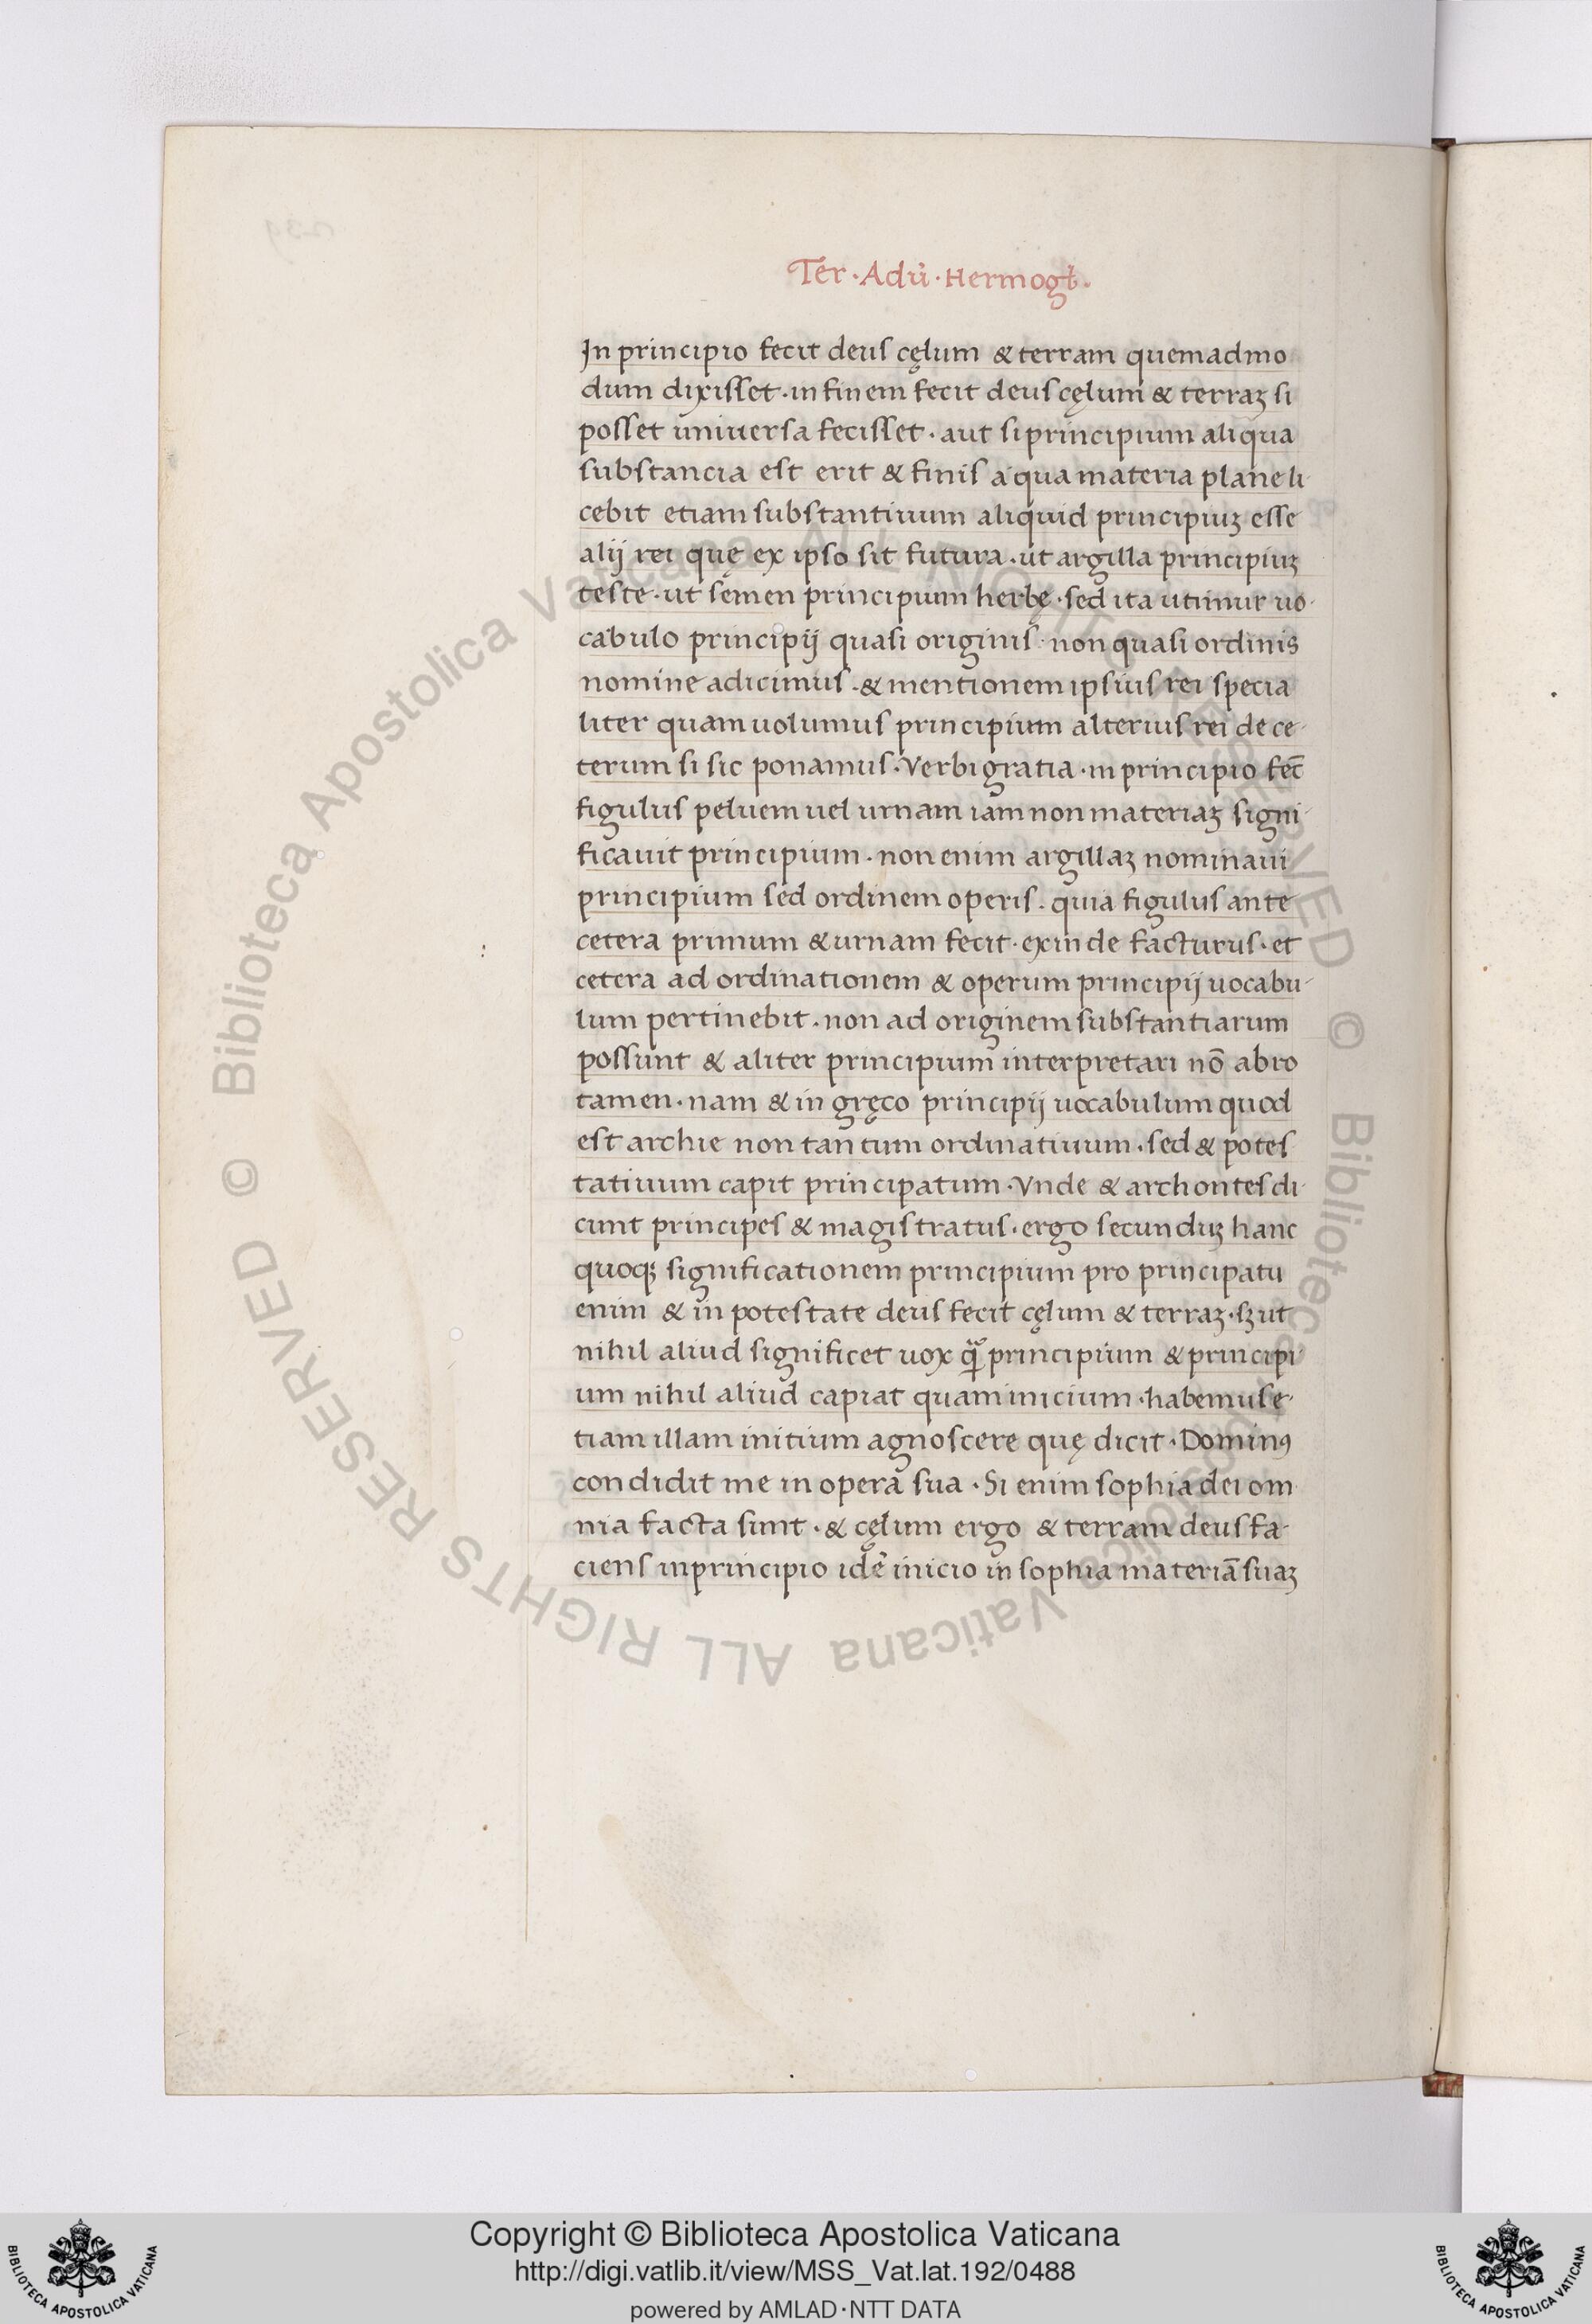 Ter · Adu̓ · Hermogē̓ ·
In principio fecit deus cęlum & terram quemadmo
dum dixisset · in finem fecit deus cęlum & terraꝫ si
posset uniuersa fecisset · aut si principium aliqua
substancia est erit & finis a qua materia plane li-
cebit etiam substantiuum aliquid principiuꝫ esse
alij rei quę ex ipso sit futura · ut argilla principiuꝫ
teste · ut semen principium herbę · sed ita utimur uo-
cabulo principij quasi originis · non quasi ordinis
nomine adicimus · & mentionem ipsius rei specia
liter quam uolumus principium alterius rei de ce-
terum si sic ponamus · Verbi gratia · in principio fec̄
figulus peluem uel urnam iam non materiaꝫ signi-
ficauit principium · non enim argillaꝫ nominaui
principium sed ordinem operis · quia figulus ante
cetera primum & urnam fecit · exinde facturus · et
cetera ad ordinationem & operum principij uocabu-
lum pertinebit · non ad originem substantiarum
possunt & aliter principium interpretari nō abro
tamen · nam & in gręco principij uocabulum quod
est archie non tantum ordinatiuum · sed & potes
tatiuum capit principatum · Vnde & archontes di-
cunt principes & magistratus · ergo secunduꝫ hanc
quoqꝫ significationem principium pro principatu
enim & in potestate deus fecit cęlum & terraꝫ · sꝫ ut
nihil aliud significet uox ꝙ̃ principium & principi
um nihil aliud capiat quam inicium · habemus e-
tiam illam initium agnoscere quę dicit · Dominꝰ
condidit me in opera sua · Si enim sophia dei om
nia facta sunt · & cęlum ergo & terram deus fa-
ciens in principio idē inicio in sophia materiā suaꝫ
© Biblioteca Apostolica Vaticana ALL RIGHTS RESERVED © Biblioteca Apostolica Vaticana ALL RIGHTS RESERVED
Copyright © Biblioteca Apostolica Vaticana
http://digi.vatlib.it/view/MSS_Vat.lat.192/0488
powered by AMLAD·NTT DATA
BIBLIOTECA APOSTOLICA VATICANA
BIBLIOTECA APOSTOLICA VATICANA